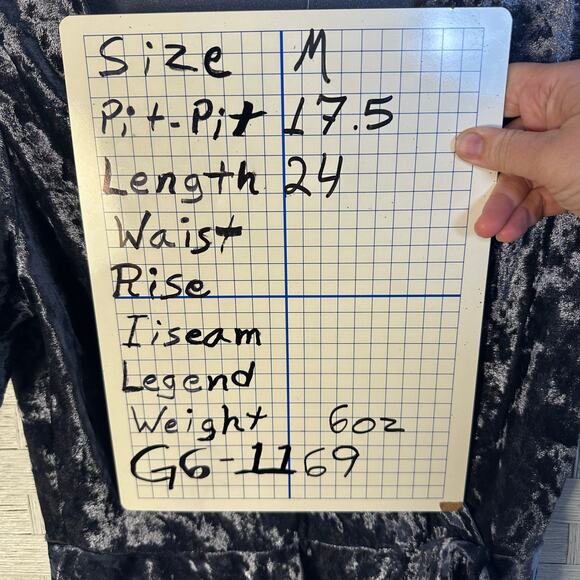 Size M
Pit-Pit 17.5
Length 24
Waist
Rise
Iiseam
Legend
Weight 6oz
G6-1169